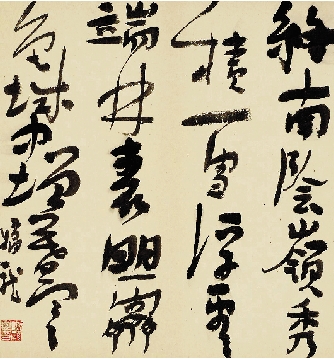 終南陰嶺秀
積雪浮雲
端林表明霽
色城中增暮寒